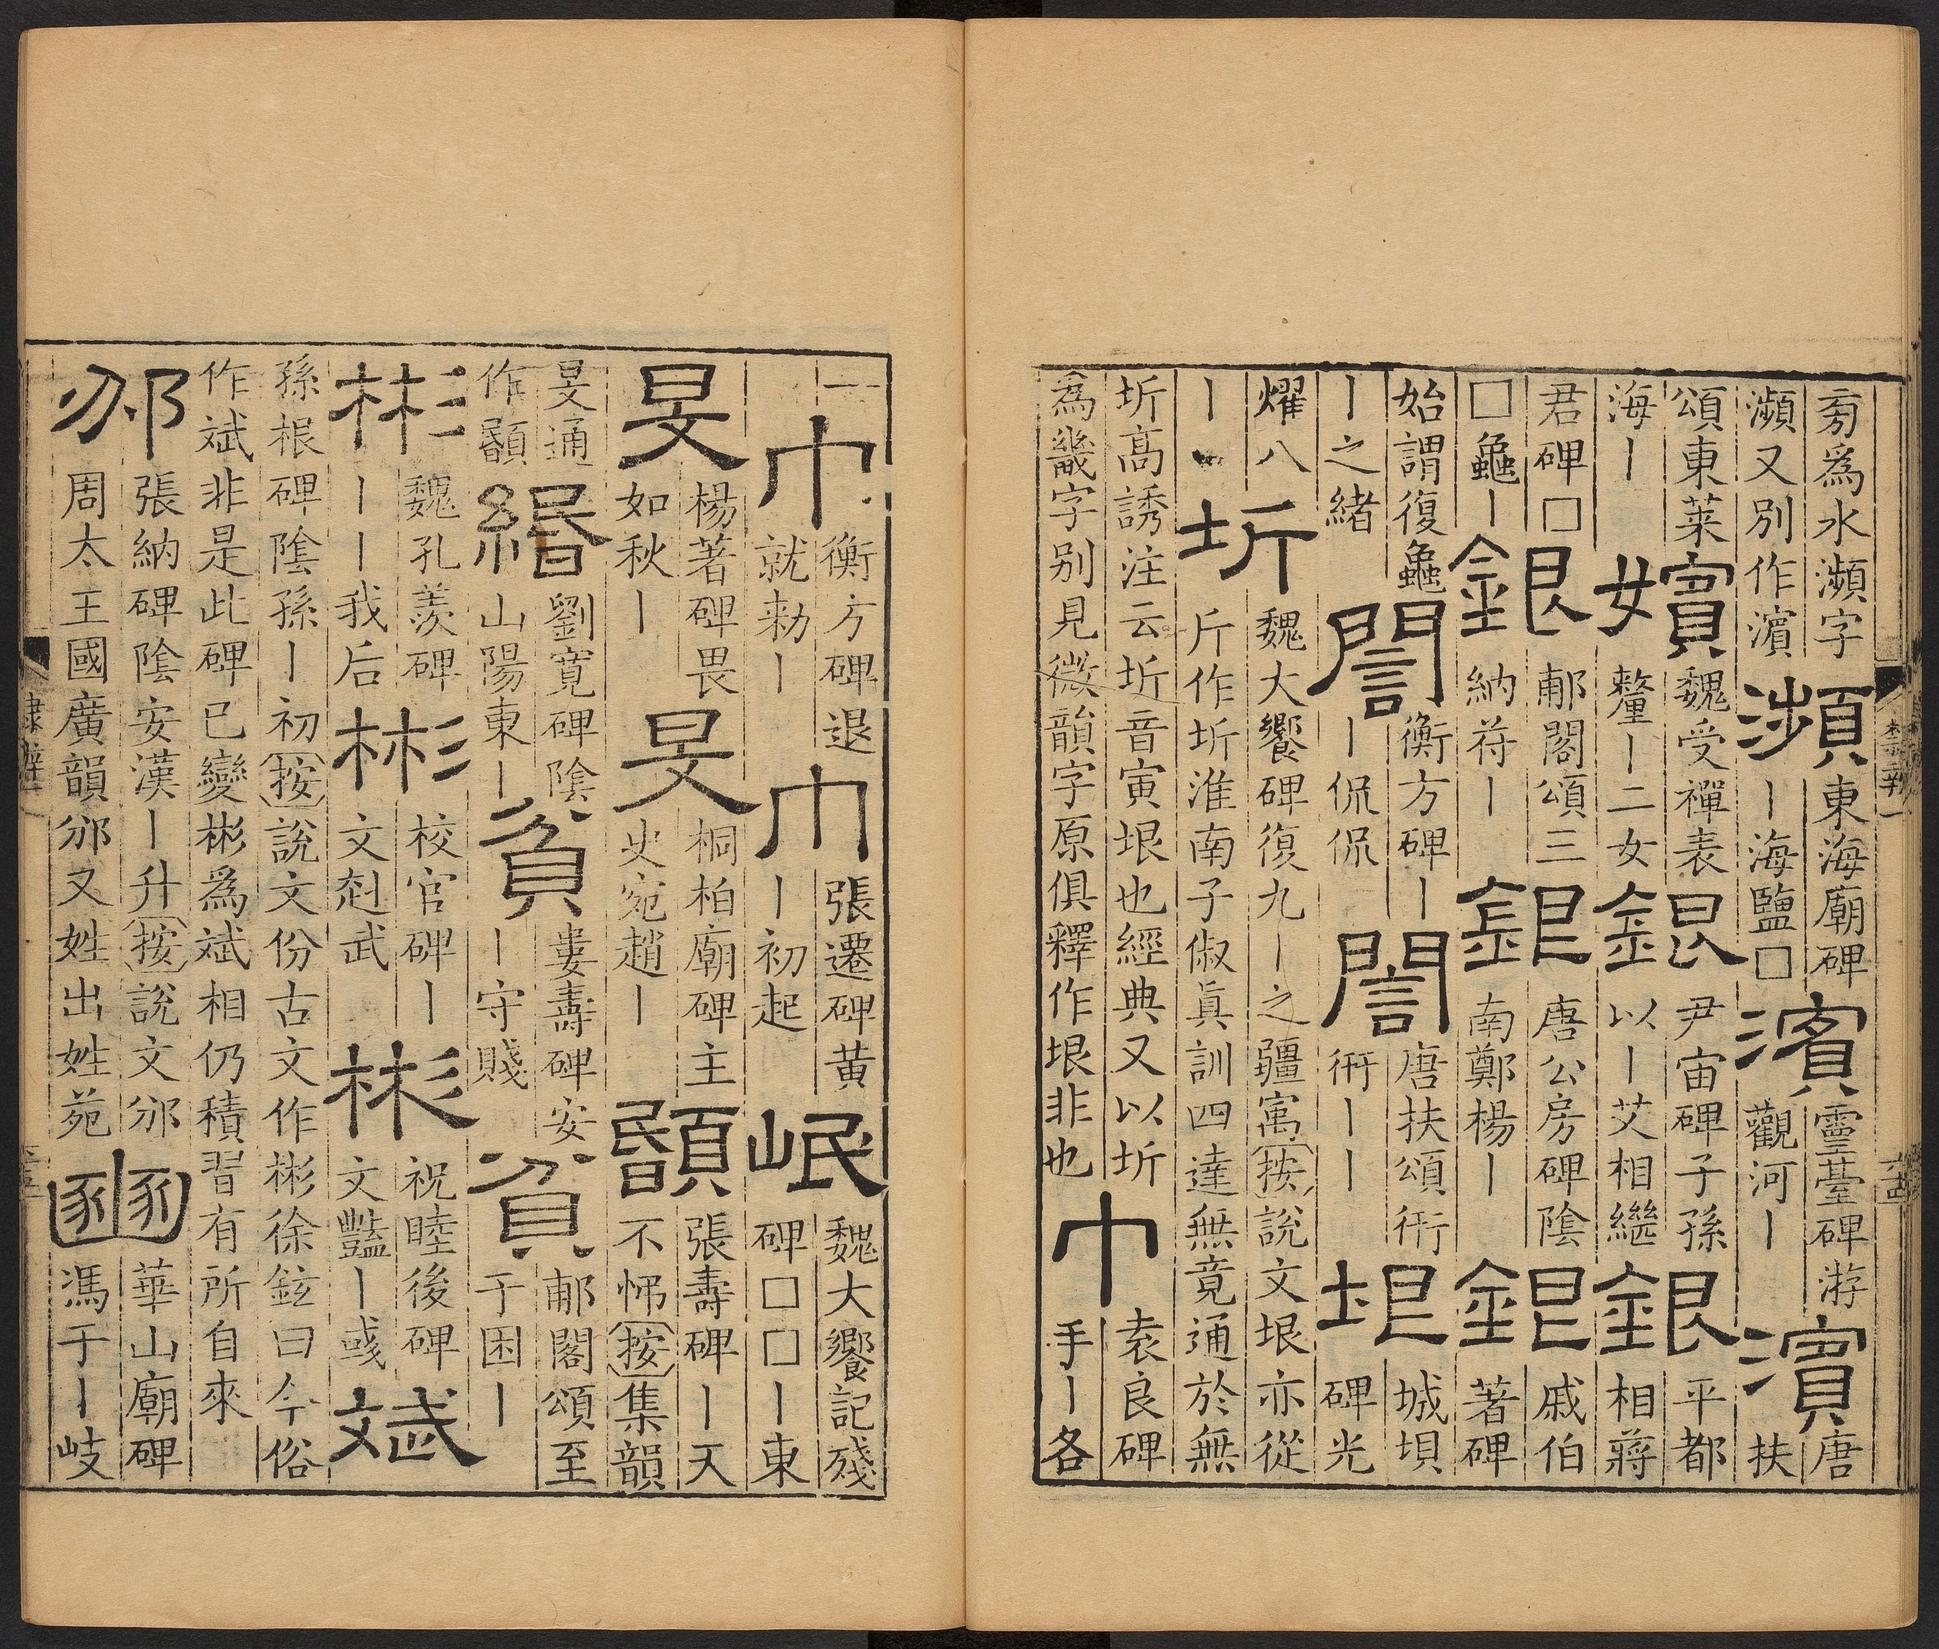 㫄為水瀕字瀕又別作濵瀕東海廟碑丨海鹽□濱靈臺碑游觀河丨濵唐扶
頌東萊海丨嬪魏受禪表釐丨二女銀尹宙碑子孫以丨艾相繼銀平都相蔣
君碑□□龜丨銀郙閣頌三納符丨銀唐公房碑陰南鄭楊丨銀戚伯著碑
始謂復龜丨之緒誾衡方碑丨丨侃侃誾唐扶頌衎衎丨丨垠城垻碑光
燿八丨圻魏大饗碑復九丨之疆㝢按說文垠亦從斤作圻淮南子俶真訓四達無竟通於無
圻高誘注云圻音寅垠也經典又以圻為畿字别見微韻字原俱釋作垠非也巾袁良碑手丨各
巾衡方碑退就勑丨巾張遷碑黄丨初起岷魏大饗記殘碑□□丨東
旻楊著碑畏如秋丨旻桐柏廟碑主史宛趙丨䫒張壽碑丨天不悌按集韻
旻通作䫒緡劉寬碑陰山陽東丨貧婁壽碑安丨守賤貧郙閣頌至于困丨
彬魏孔羨碑丨丨我后彬校官碑丨文赳武彬祝睦後碑文豔丨彧斌
孫根碑陰孫丨初按說文份古文作彬徐鉉曰今俗作斌非是此碑已變彬為斌相仍積習有所自來
邠張納碑陰安漢丨升按說文邠周太王國廣韻邠又姓出姓苑豳華山廟碑馮于丨岐
隸辨一